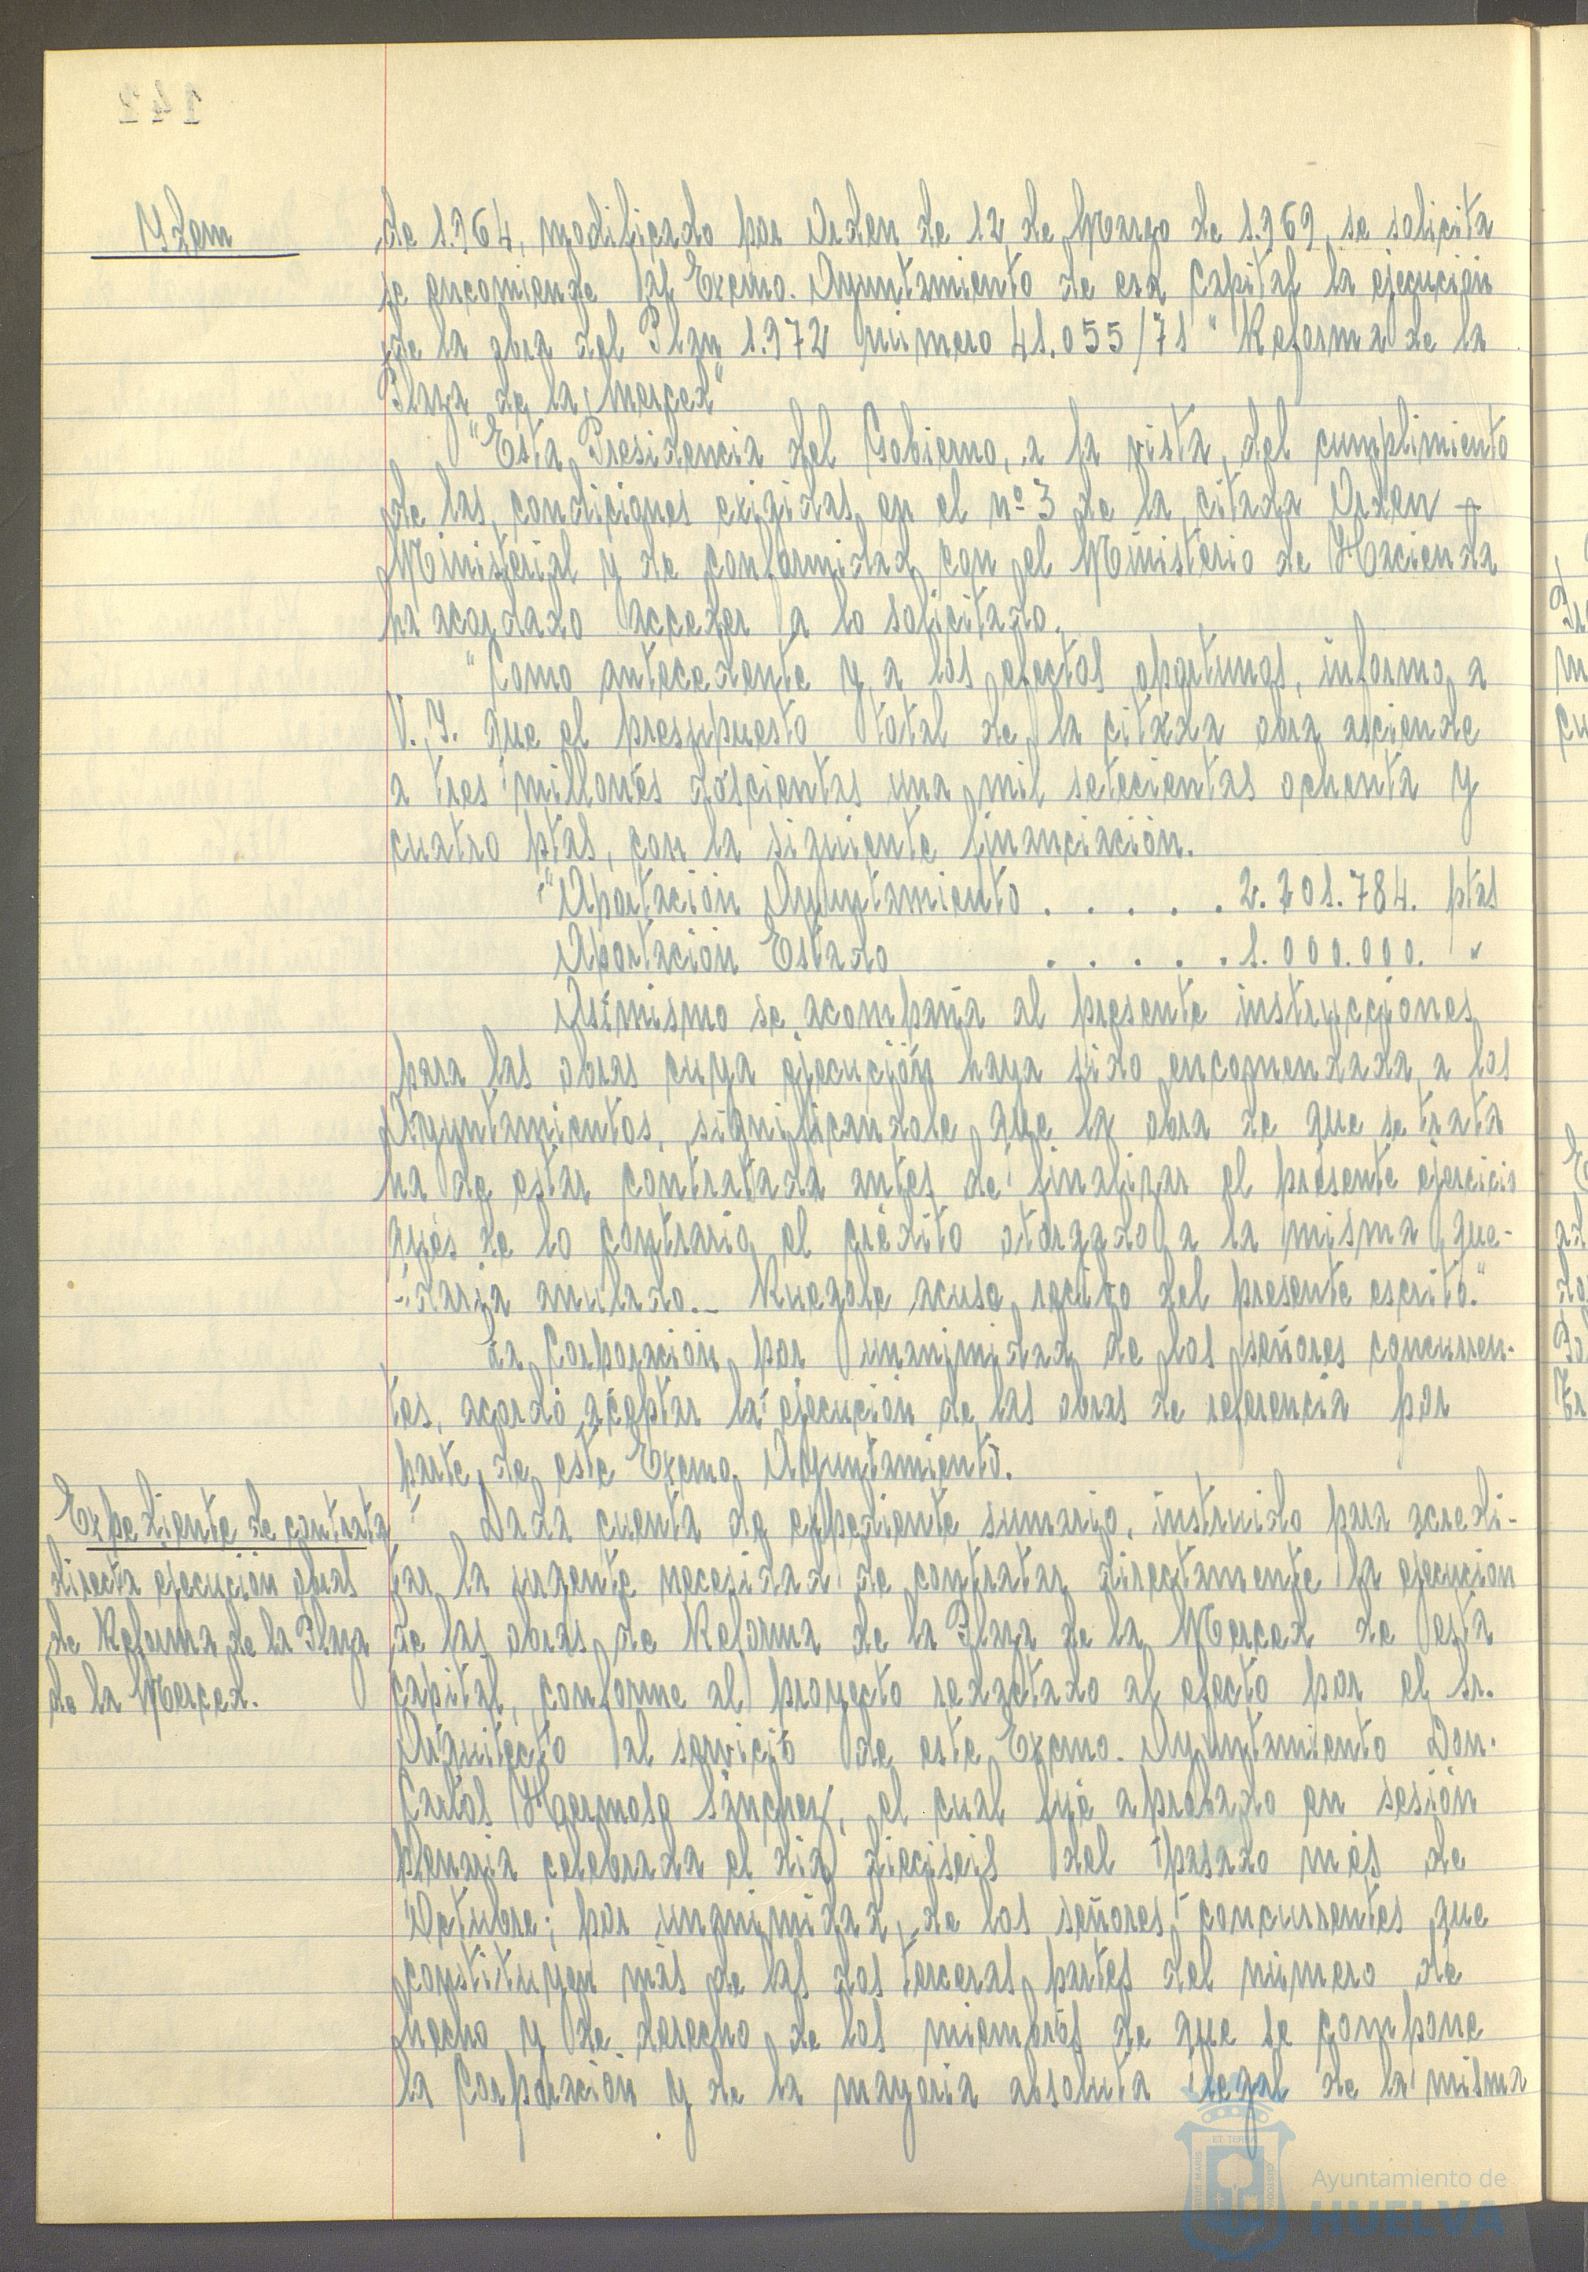 142
Idem
de 1.964, modificado por Orden de 12 de Marzo de 1.969, se solicita
se encomiende al Excmo. Ayuntamiento de esa Capital la ejecución
de la obra del Plan 1.972 número 41.055/71 "Reforma de la
Plaza de la Merced"
"Esta Presidencia del Gobierno, a la vista, del cumplimiento
de las condiciones exigidas en el nº 3 de la citada Orden -
Ministerial y de conformidad con el Ministerio de Hacienda
ha acordado acceder a lo solicitado.
"Como antecedente y a los efectos oportunos, informo a
V. I. que el presupuesto total de la citada obra asciende
a tres millones doscientas una mil setecientas ochenta y
cuatro ptas, con la siguiente financiación.
"Aportación Ayuntamiento . . . . . 2.201.784. ptas
Aportación Estado . . . . . 1.000.000. "
Asimismo se acompaña al presente instrucciones
para las obras cuya ejecución haya sido encomendada a los
Ayuntamientos, significandole que la obra de que se trata
ha de estar contratada antes de finalizar el presente ejercicio
pues de lo contrario el crédito otorgado a la misma que-
-daria anulado.- Ruegole acuse recibo del presente escrito."
La Corporación por unanimidad de los señores concurren-
tes, acordó aceptar la ejecución de las obras de referencia por
parte de este Excmo. Ayuntamiento.
Expediente de contrata
directa ejecución obras
de Reforma de la Plaza
de la Merced.
Dada cuenta de expediente sumario, instruido para acredi-
tar la urgente necesidad de contratar directamente la ejecucion
de las obras de Reforma de la Plaza de la Merced de esta
capital, conforme al proyecto redactado al efecto por el Sr.
Arquitecto al servicio de este Excmo. Ayuntamiento Don.
Carlos Hermoso Sánchez, el cual fué aprobado en sesión
plenaria celebrada el dia dieciseis del pasado més de
Octubre; por unanimidad, de los señores concurrentes que
constituyen más de las dos terceras partes del número de
hecho y de derecho de los miembros de que se compone
la Corporación y de la mayoria absoluta legal de la misma
Ayuntamiento de
HUELVA